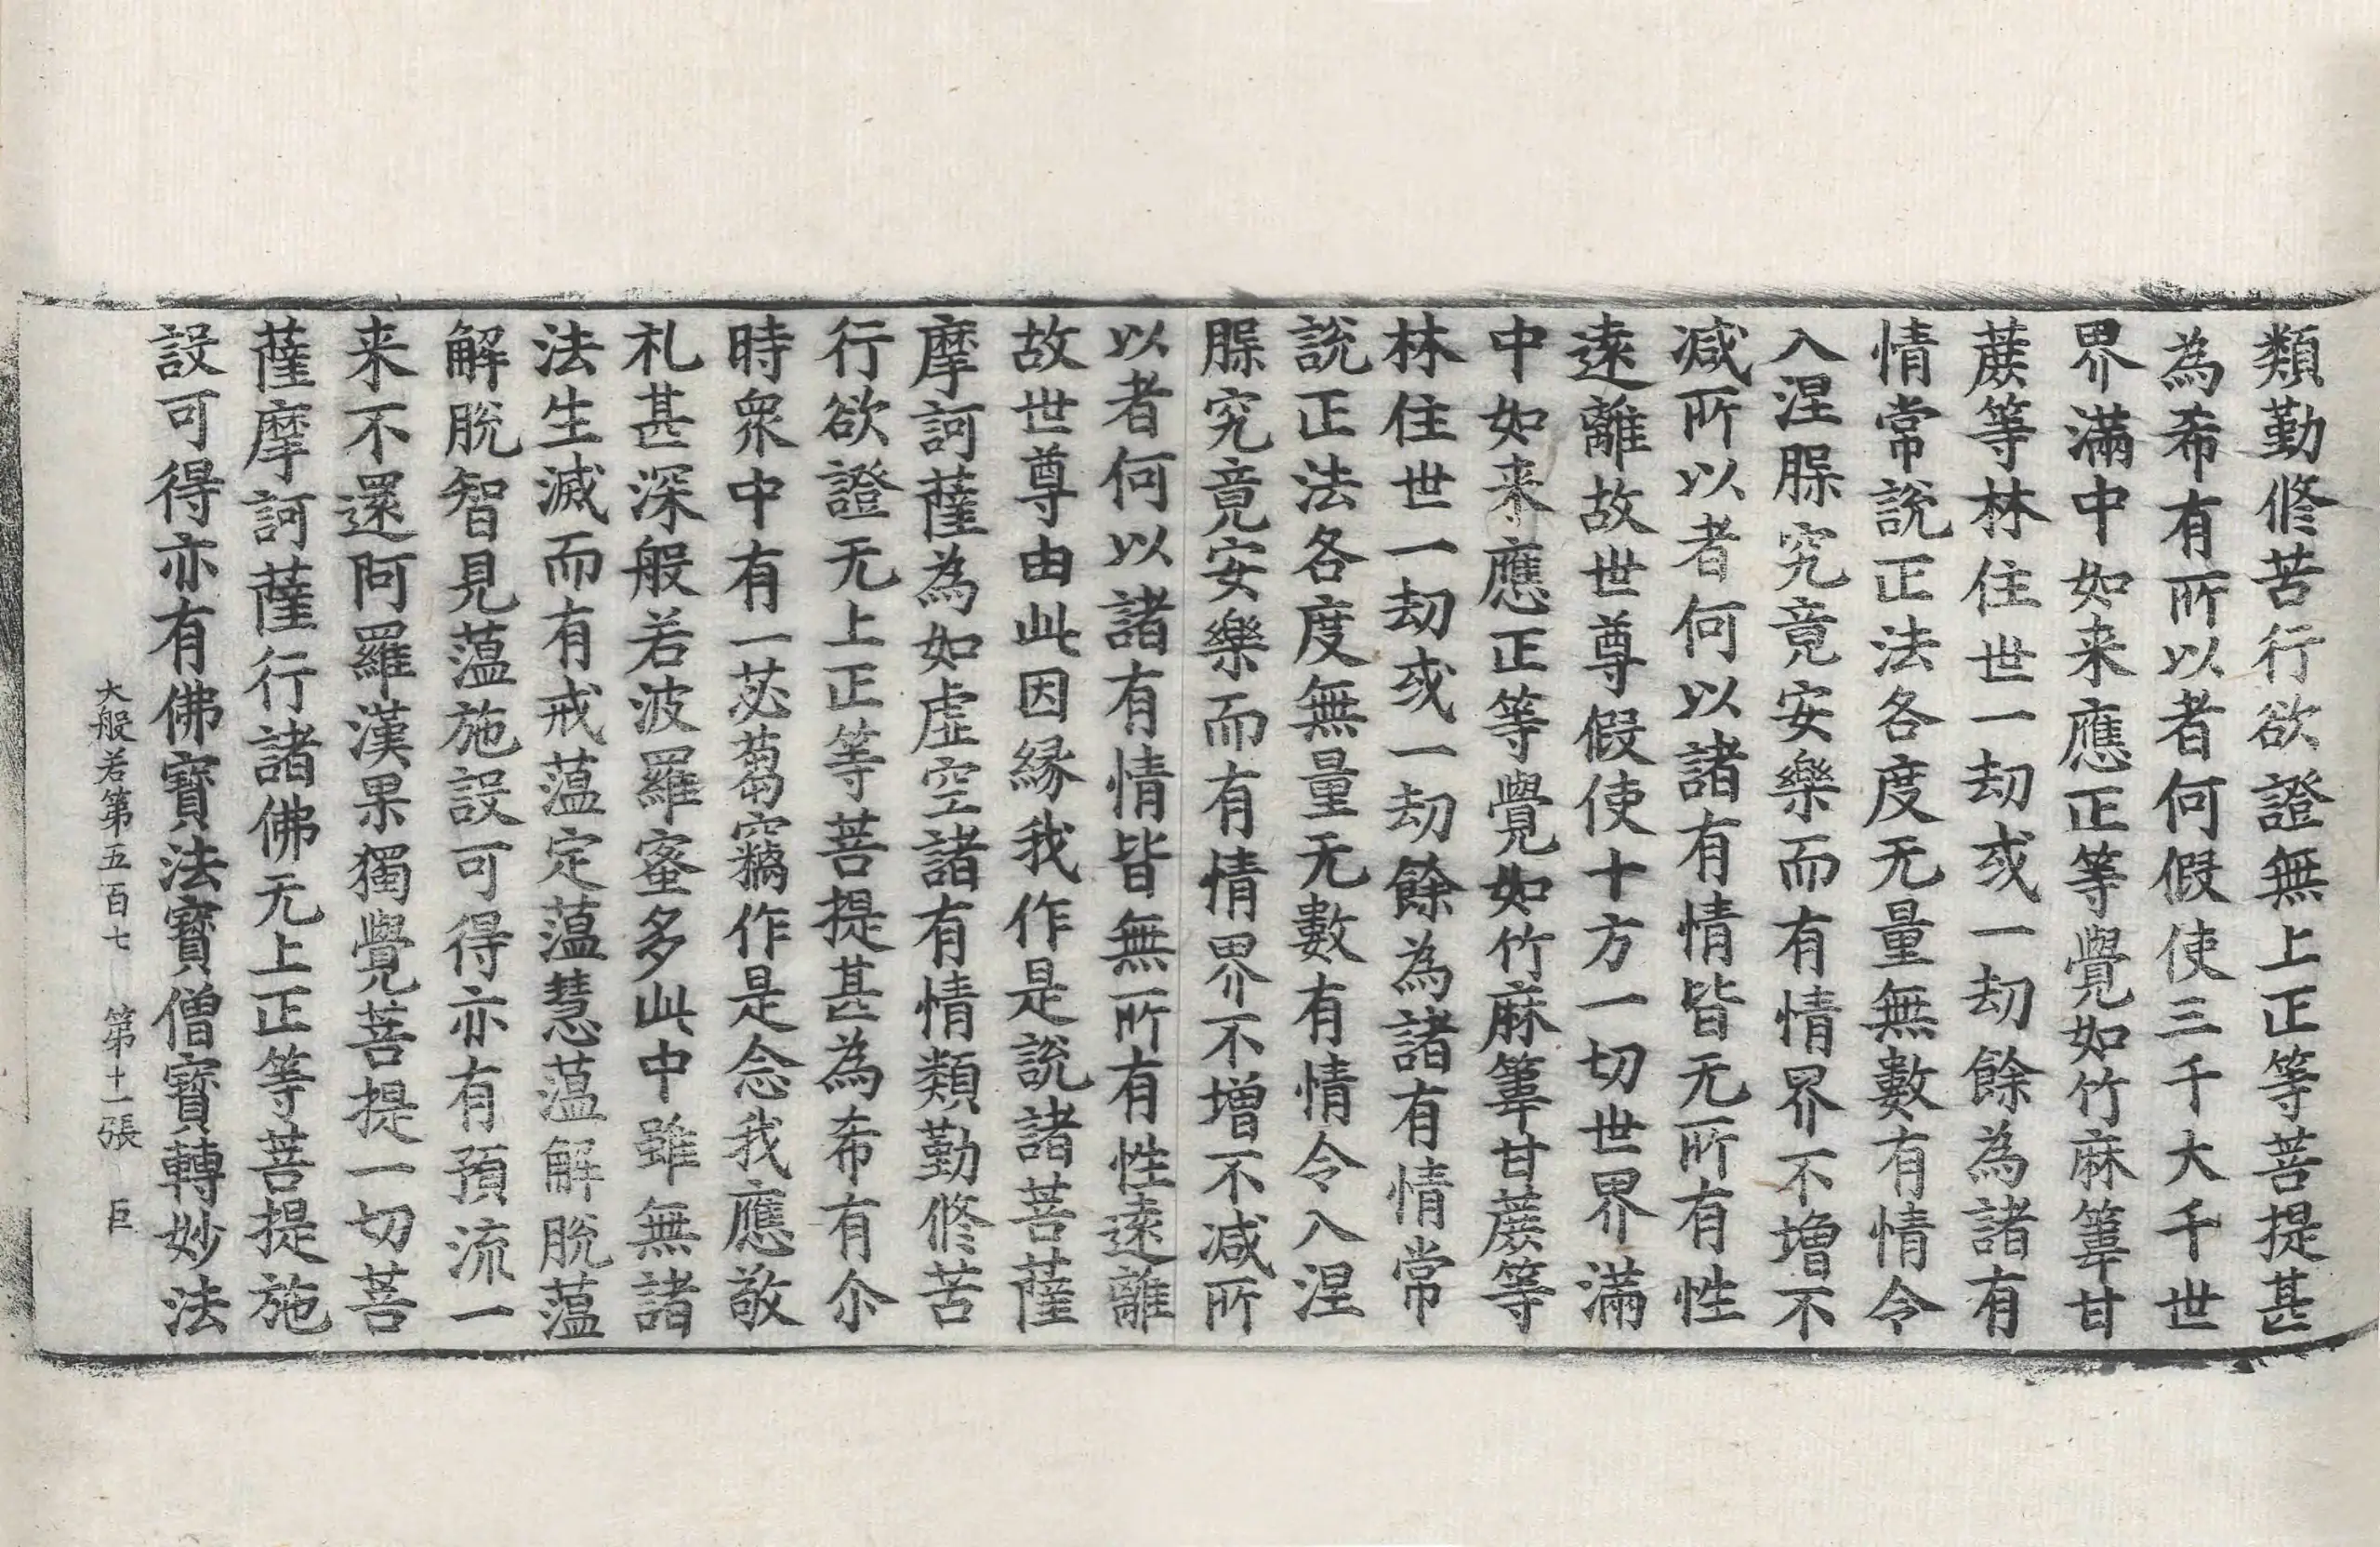 類勤修苦行欲證無上正等菩提甚
為希有所以者何假使三千大千世
界滿中如来應正等覺如竹麻葦甘
蔗等林住世一劫或一劫餘為諸有
情常說正法各度无量無數有情令
入涅槃究竟安樂而有情界不增不
减所以者何以諸有情皆无所有性
遠離故世尊假使十方一切世界滿
中如来應正等覺如竹麻葦甘蔗等
林住世一劫或一劫餘為諸有情常
說正法各度無量无數有情令入涅
槃究竟安樂而有情界不增不减所
以者何以諸有情皆無所有性遠離
故世尊由此因縁我作是說諸菩薩
摩訶薩為如虛空諸有情類勤修苦
行欲證无上正等菩提甚為希有尒
時衆中有一苾蒭竊作是念我應敬
礼甚深般若波羅蜜多此中雖無諸
法生滅而有戒蕰定蕰慧蕰解脫蕰
解脫智見蕰施設可得亦有預流一
来不還阿羅漢果獨覺菩提一切菩
薩摩訶薩行諸佛无上正等菩提施
設可得亦有佛寶法寶僧寶轉妙法
大般若第五百七 第十一張 巨